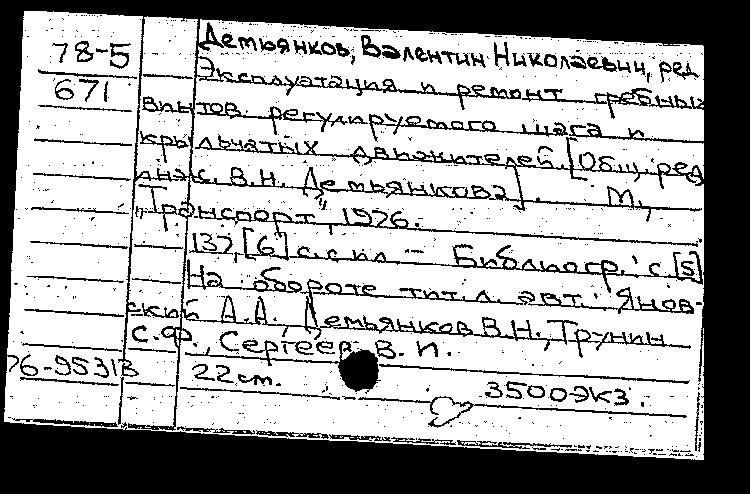 78-5 Демьянков, Валентин Николаевич, ред.
671 Эксплуатация и ремонт гребных
винтов регулируемого шага и
крыльчатых движителей. [Общ. ред.
инж. В.Н. Демьянкова]. М.,
"Транспорт", 1976.
137, [6] с. с ил. – Библиогр.: с. [5]
На обороте тит. л. авт.: Янов-
ский А.А., Демьянков В.Н., Трунин
С.Ф., Сергеев В.П.
76-9531В 22 см. 3500 экз.